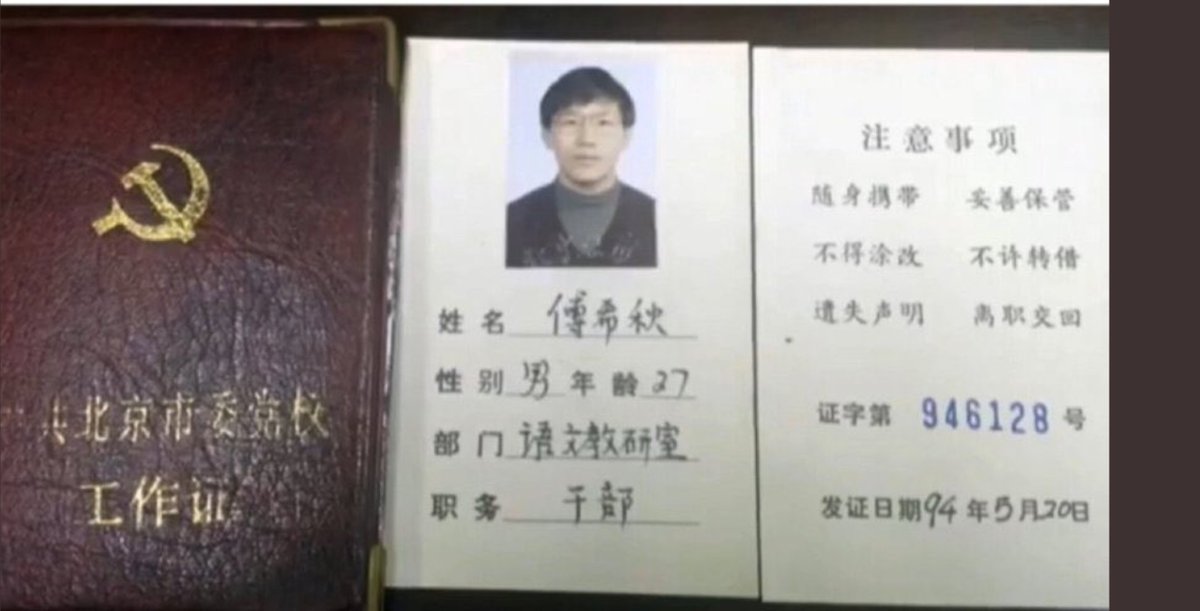 共北京市委党校
工作证
姓名 傅希秋
性别 男 年龄 27
部门 语文教研室
职务 干部
注意事项
随身携带 妥善保管
不得涂改 不许转借
遗失声明 离职交回
证字第 946128 号
发证日期 94 年 5 月 20 日